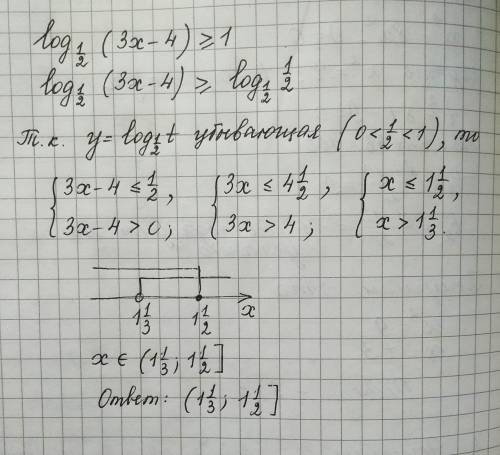 log_{1/2} (3x-4) ≥ 1
log_{1/2} (3x-4) ≥ log_{1/2} 1/2
Т.к. y = log_{1/2} t убывающая (0 < 1/2 < 1), то
{ 3x-4 ≤ 1/2, { 3x ≤ 4 1/2, { x ≤ 1 1/2,
{ 3x-4 > 0; { 3x > 4; { x > 1 1/3.
1 1/3 1 1/2 x
x ∈ (1 1/3; 1 1/2]
Ответ: (1 1/3; 1 1/2]